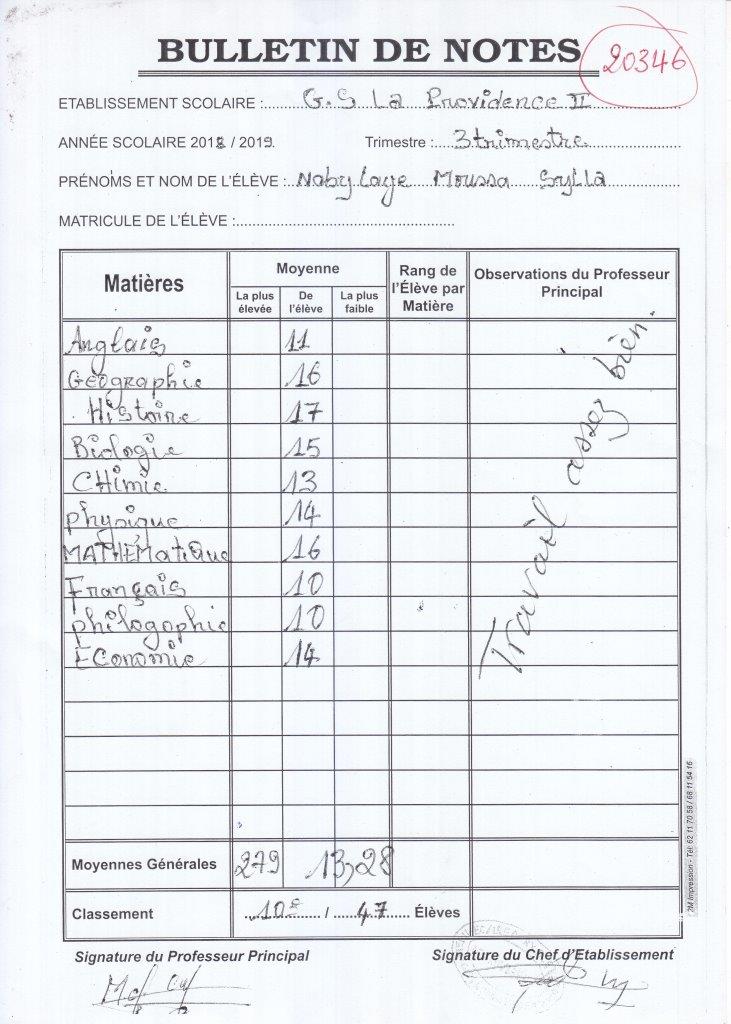 BULLETIN DE NOTES
20346
ETABLISSEMENT SCOLAIRE : G.S La Providence II
ANNÉE SCOLAIRE 2018 / 2019. Trimestre : 3trimestre
PRÉNOMS ET NOM DE L'ÉLÈVE : Naby Laye Moussa Sylla
MATRICULE DE L'ÉLÈVE :
Matières Moyenne Rang de l'Élève par Matière Observations du Professeur Principal
La plus élevée De l'élève La plus faible
Anglais 11
Géographie 16
Histoire 17
Biologie 15
CHimie 13
physique 14
MATHÉMatique 16
Français 10
philosophie 10
Economie 14
Travail assez bien.
Moyennes Générales 279 13,28
Classement 10e / 47 Élèves
Signature du Professeur Principal Signature du Chef d'Etablissement
2M Impression - Tél: 62 11 70 58 / 68 11 54 16